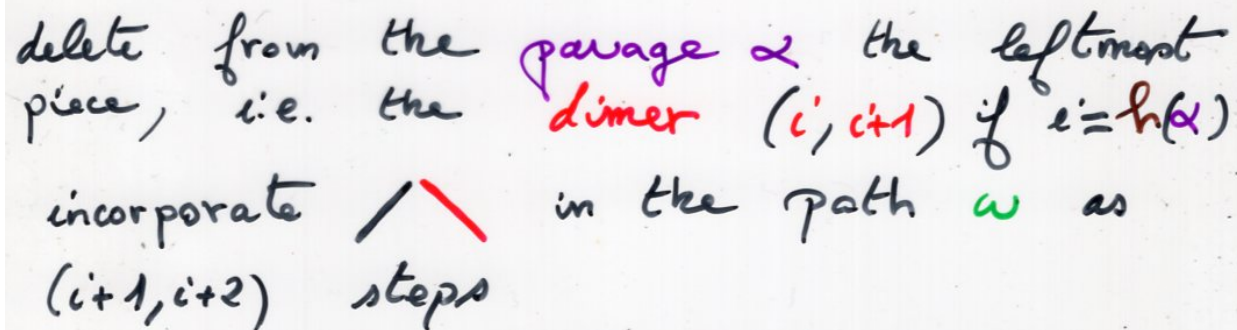 delete from the pavage α the leftmost
piece, i.e. the dimer (i, i+1) if i=h(α)
incorporate in the path ω as
(i+1, i+2) steps